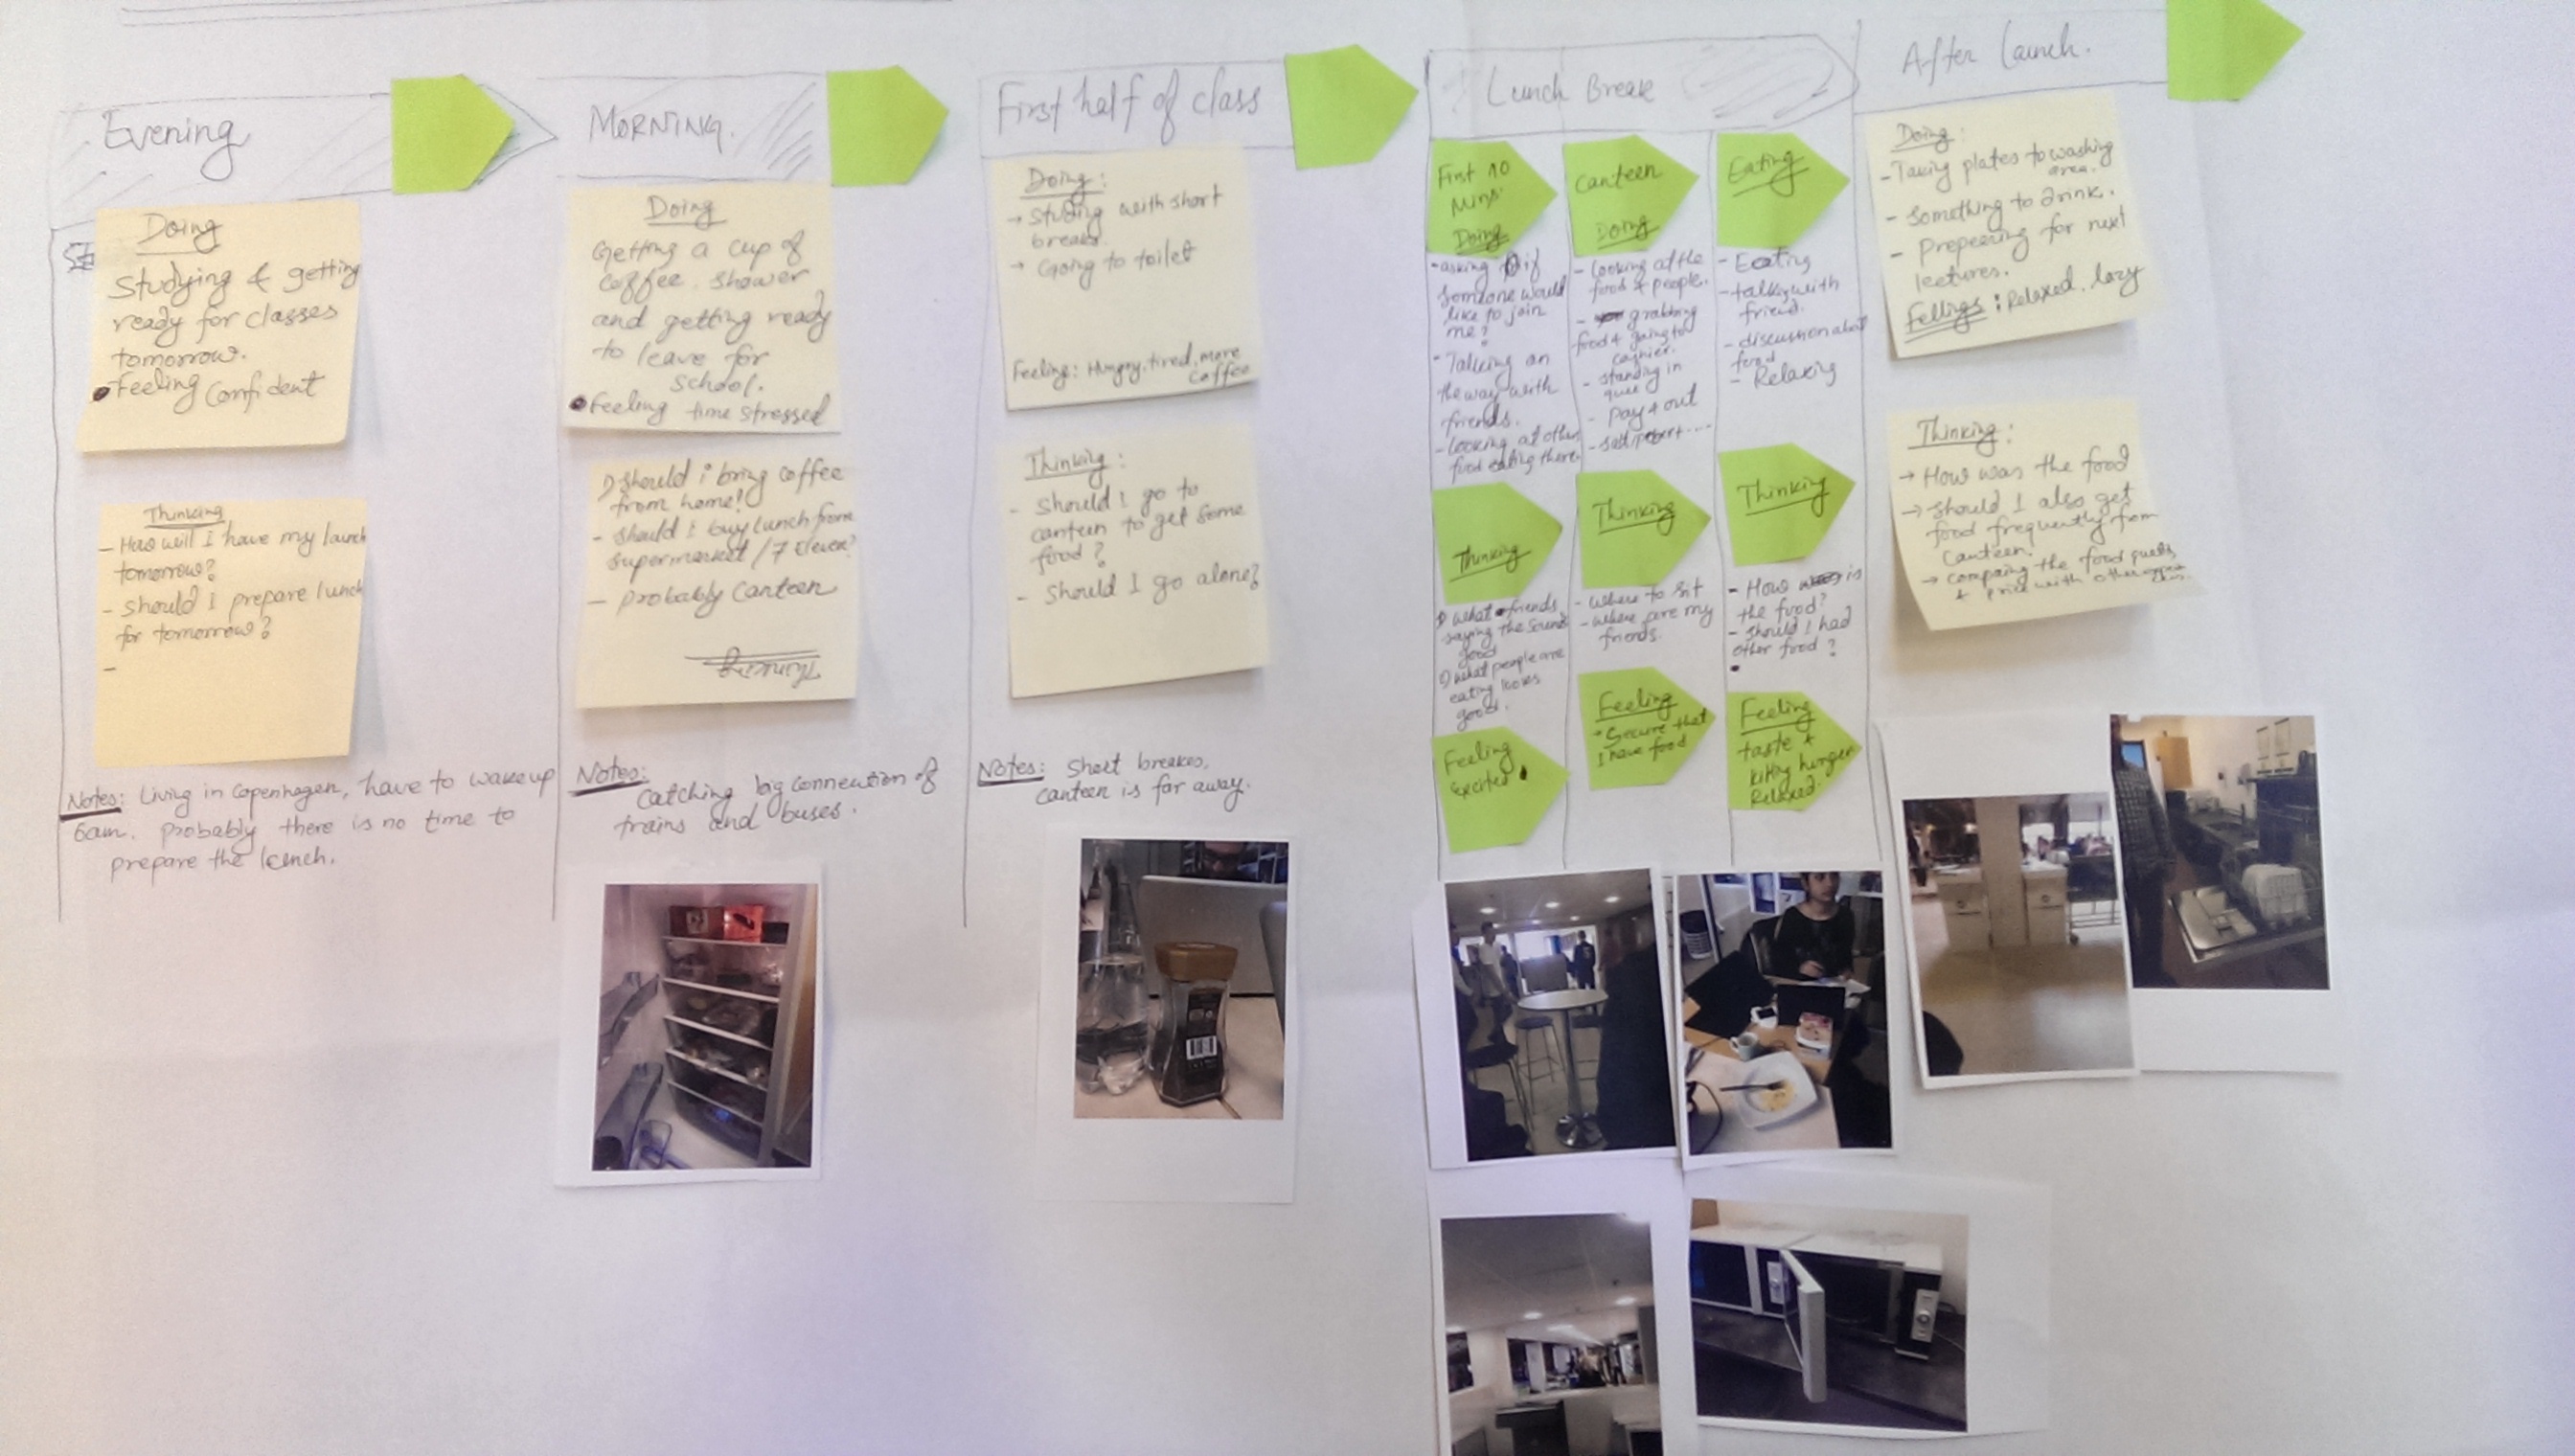 Evening
Doing
Studying & getting
ready for classes
tomorrow.
Feeling Confident
Thinking
- How will I have my launch
tomorrow?
- Should I prepare lunch
for tomorrow?
-
Notes: Living in Copenhagen, have to wake up
6am. probably there is no time to
prepare the lunch.
MORNING.
Doing
Getting a cup of
coffee. shower
and getting ready
to leave for
school.
Feeling time stressed
should i bring coffee
from home!
- should I buy lunch from
supermarket / 7 Eleven?
- probably Canteen
Thinking
Notes:
Catching big connection of
trains and buses.
First half of class
Doing:
→ Studing with short
breaks.
→ Going to toilet
Feeling: Hungry, tired, more
coffee
Thinking:
- Should I go to
canteen to get some
food?
- Should I go alone?
Notes: Short breakes,
canteen is far away.
Lunch Break
First 10
Mins
Doing
- asking if
someone would
like to join
me?
- Talking on
the way with
friends.
- looking at other
food eating there.
Thinking
what friends
saying the sound
good
what people are
eating looks
good.
Feeling
excited
Canteen
Doing
- looking at the
food & people.
- grabbing
food & going to
cashier.
- standing in
que
- pay & out
Thinking
- where to sit
- where are my
friends.
Feeling
- Secure that
I have food
Eating
- Eating
- talky with
friend.
- discussion about
food
- Relaxing
Thinking
- How is
the food?
- should I had
other food?
Feeling
taste +
killing hunger
Relaxed.
After Launch.
Doing:
- Taking plates to washing
area.
- Something to drink.
- Prepeering for next
lectures.
Fellings: Relaxed, lazy
Thinking:
→ How was the food
→ Should I also get
food frequently from
canteen.
→ Comparing the food
+ price with other